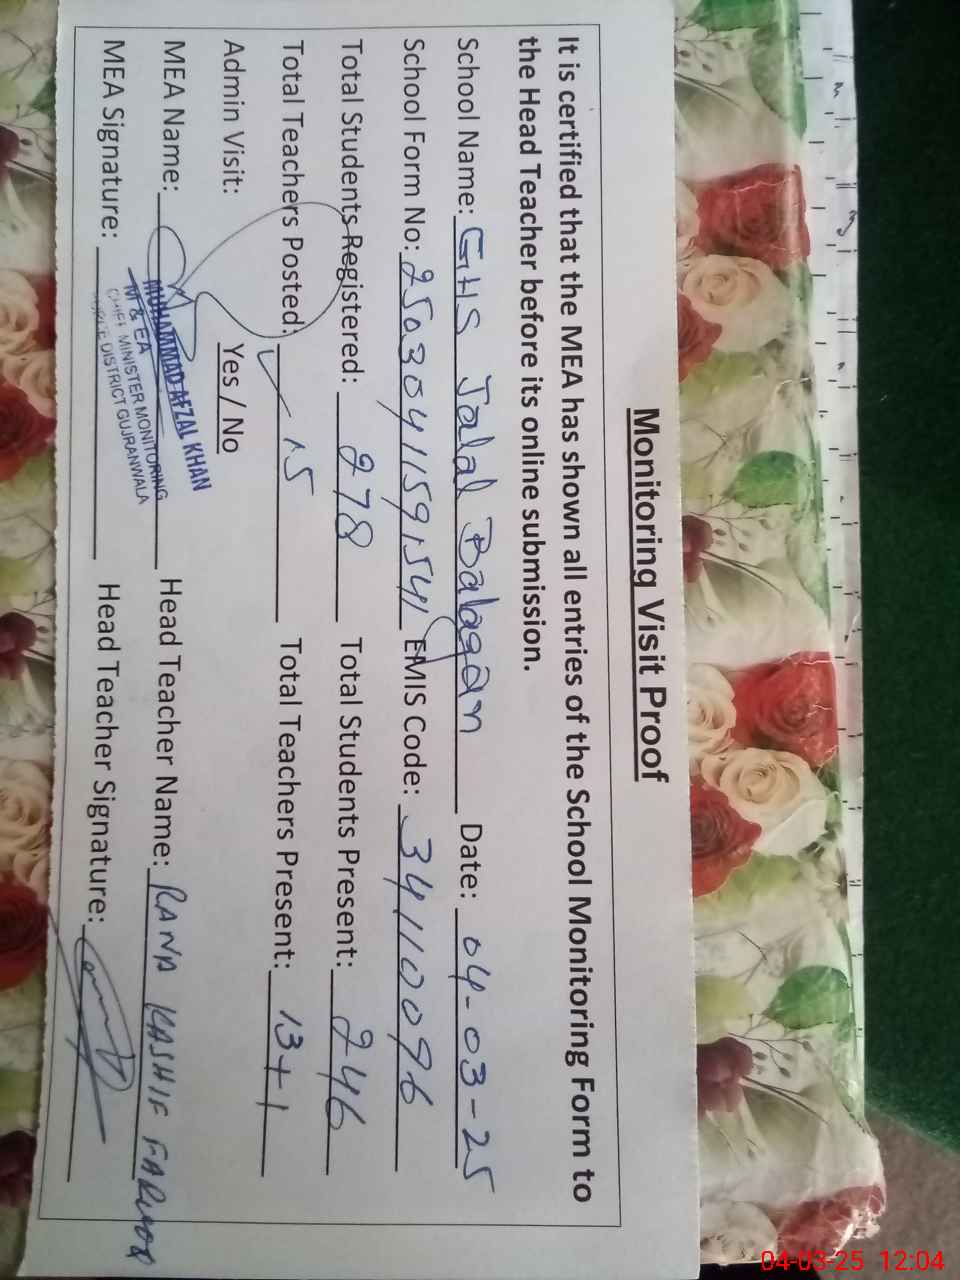 Monitoring Visit Proof
It is certified that the MEA has shown all entries of the School Monitoring Form to
the Head Teacher before its online submission.
School Name: GHS Jalal Balagan Date: 04-03-25
School Form No: 2503041159,541 EMIS Code: 34110096
Total Students Registered: 278 Total Students Present: 246
Total Teachers Posted: 15 Total Teachers Present: 13+1
Admin Visit: Yes / No
MEA Name: Head Teacher Name: RANA KASHIF FAROOQ
MUHAMMAD AFZAL KHAN
M & EA
CHIEF MINISTER MONITORING
FORCE DISTRICT GUJRANWALA
MEA Signature: Head Teacher Signature:
04-03-25 12:04